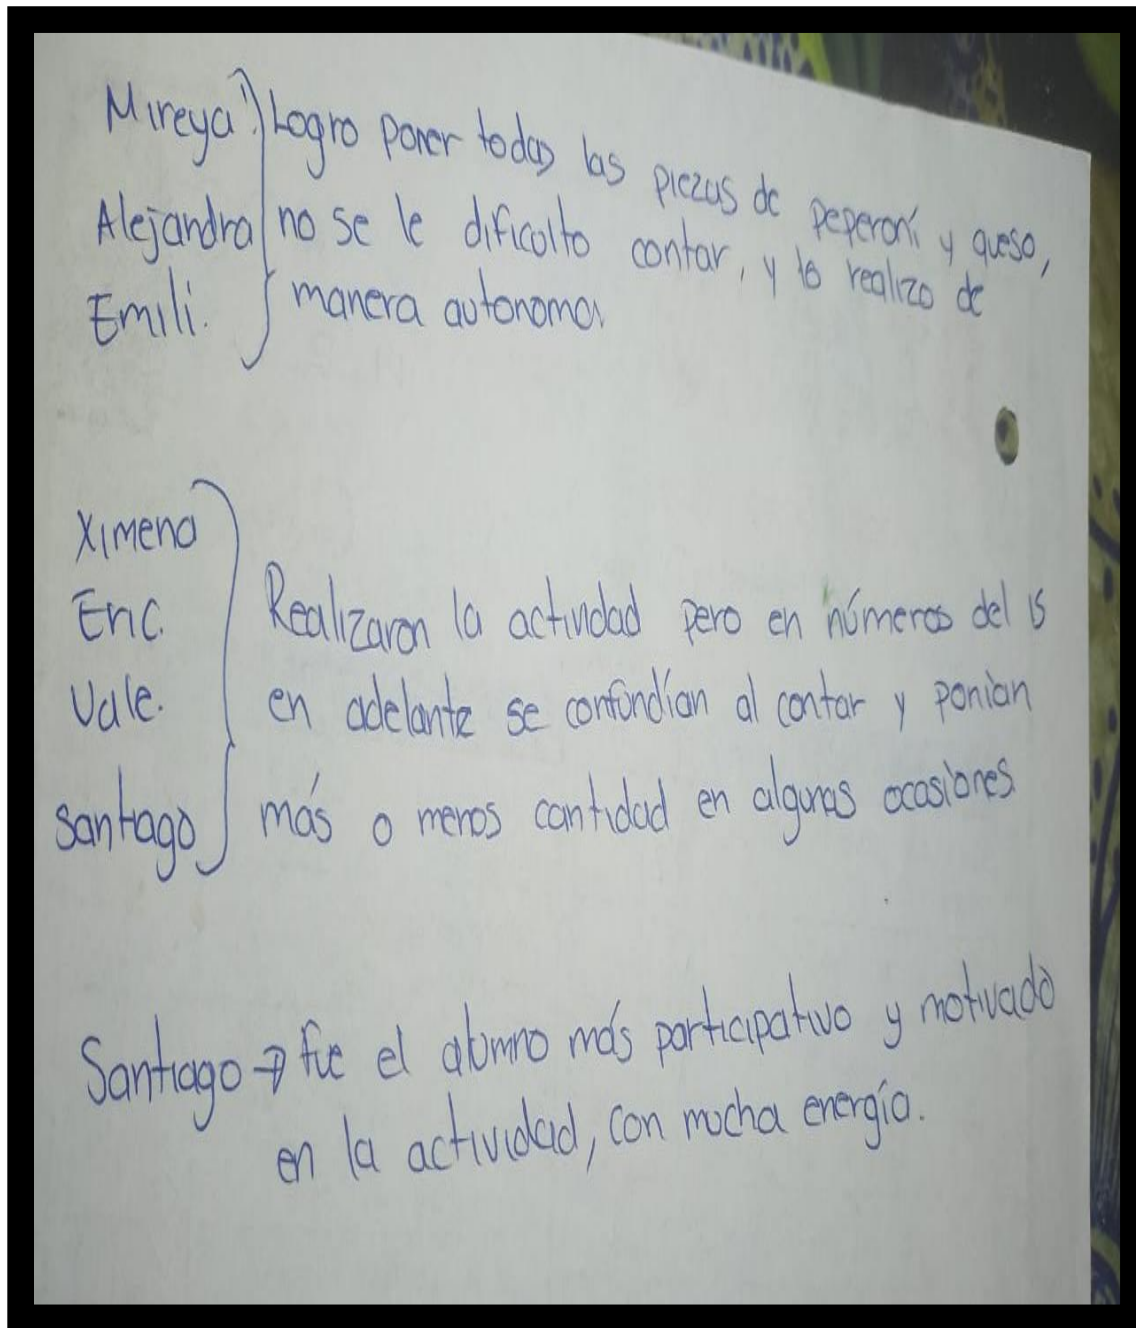 Mireya } Logro poner todas las piezas de peperoní y queso,
Alejandra } no se le dificulto contar, y lo realizo de
Emili. } manera autonoma.
Ximena
Eric. } Realizaron la actividad pero en números del 15
Vale. } en adelante se confundían al contar y ponían
Santiago } más o menos cantidad en algunas ocasiones
Santiago → fue el alumno más participativo y motivado
en la actividad, con mucha energía.